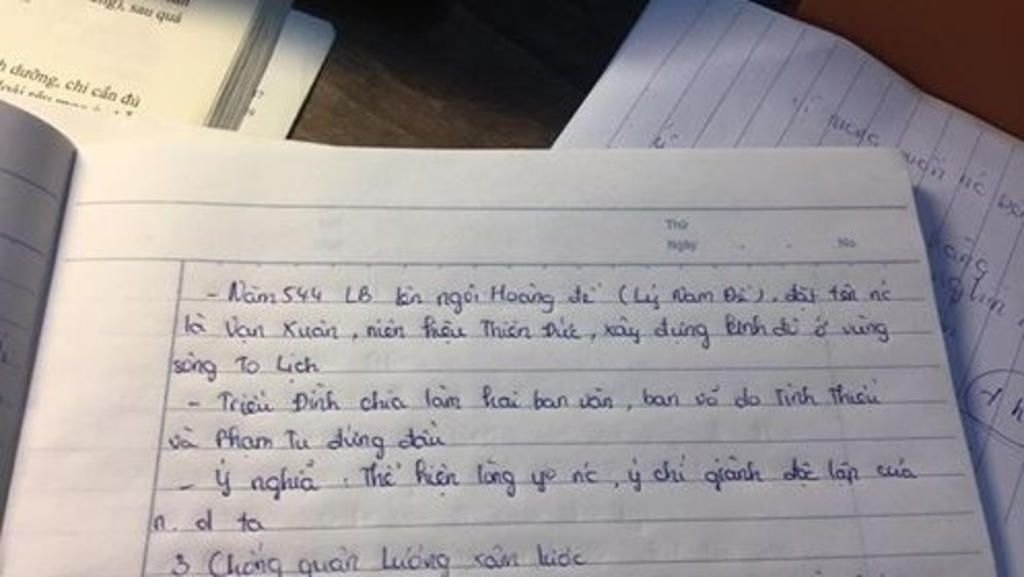 ng), sau quá
h dưỡng, chi cần đủ
Thứ
Ngày No.
- Năm 544 LB lên ngôi Hoàng đế (Lý Nam Đế), đặt tên nc
là Vạn Xuân, niên hiệu Thiên Đức, xây dựng kinh đô ở vùng
sông Tô Lịch
- Triều Đình chia làm hai ban văn, ban võ do Tinh Thiều
và Phạm Tu đứng đầu
- Ý nghĩa : Thể hiện lòng yo nc, ý chí giành độc lập của
n. d ta
3 Chống quân Lương xâm lược